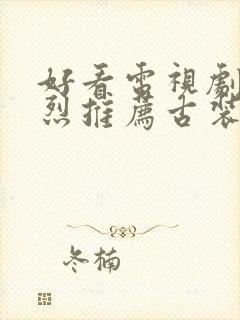 好看電視劇
烈推薦古裝
冬楠